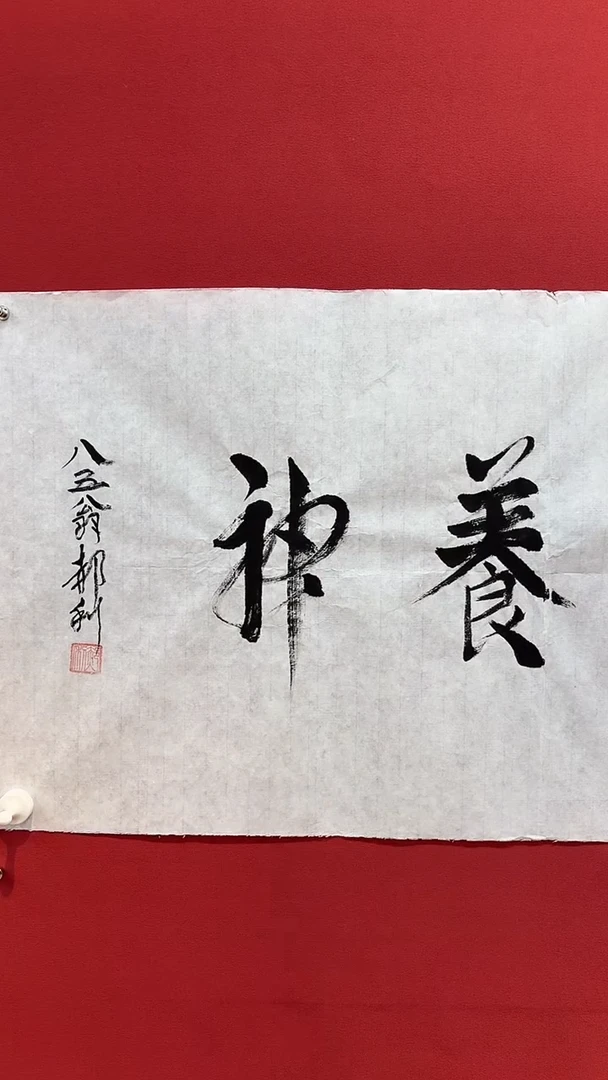 養神
八五翁郝利